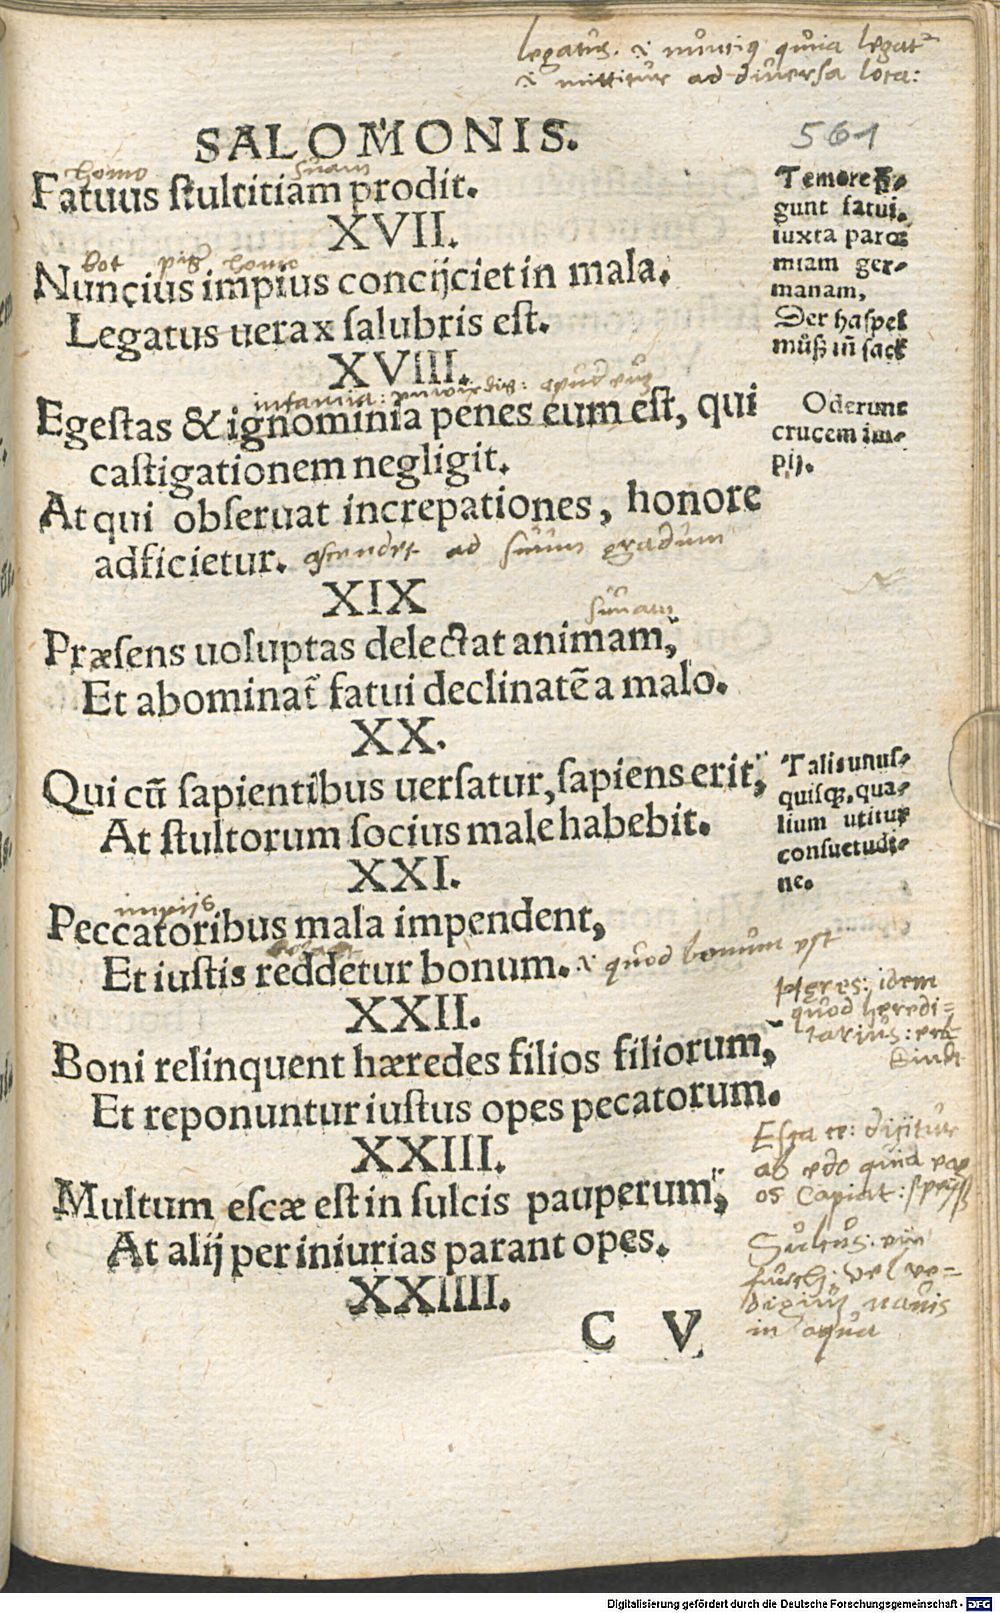 legatus. i nuncius quia legat
i mittitur ad diuersa loca:
SALOMONIS.
561
homo suam
Fatuus ſtultitiam prodit.
XVII.
bot homo
Nunçius impius concijciet in mala.
Legatus uerax ſalubris eſt.
XVIII.
infamia: apud eum
Egeſtas & ignominia penes eum eſt, qui
caſtigationem negligit.
At qui obſeruat increpationes, honore
adficietur. aſcendet ad ſuum gradum
XIX
ſuuam
Præſens uoluptas delectat animam,
Et abominat̃ fatui declinatẽ a malo.
XX.
Qui cũ ſapientibus uerſatur, ſapiens erit,
At ſtultorum ſocius male habebit.
XXI.
impijs
Peccatoribus mala impendent,
Et iuſtis reddetur bonum. quod bonum eſt
XXII.
Boni relinquent hæredes filios filiorum,
Et reponuntur iuſtus opes pecatorum.
XXIII.
Multum eſcæ eſt in ſulcis pauperum,
At alij per iniurias parant opes.
XXIIII.
C V
Temore
gunt fatui,
iuxta parœ
miam ger-
manam,
Der haſpel
müß iñ ſack
Oderunt
crucem im-
pij.
Talis unuſ-
quiſq;, qua-
lium utitur
conſuetudi-
ne.
Hęres: idem
quod heredi=
tarius:
Eſca dicitur
ab edo quia
os capiat: ſpeyß
Sulcus:
vel ve=
ſtigium nauis
in aqua
Digitalisierung gefördert durch die Deutsche Forschungsgemeinschaft - DFG